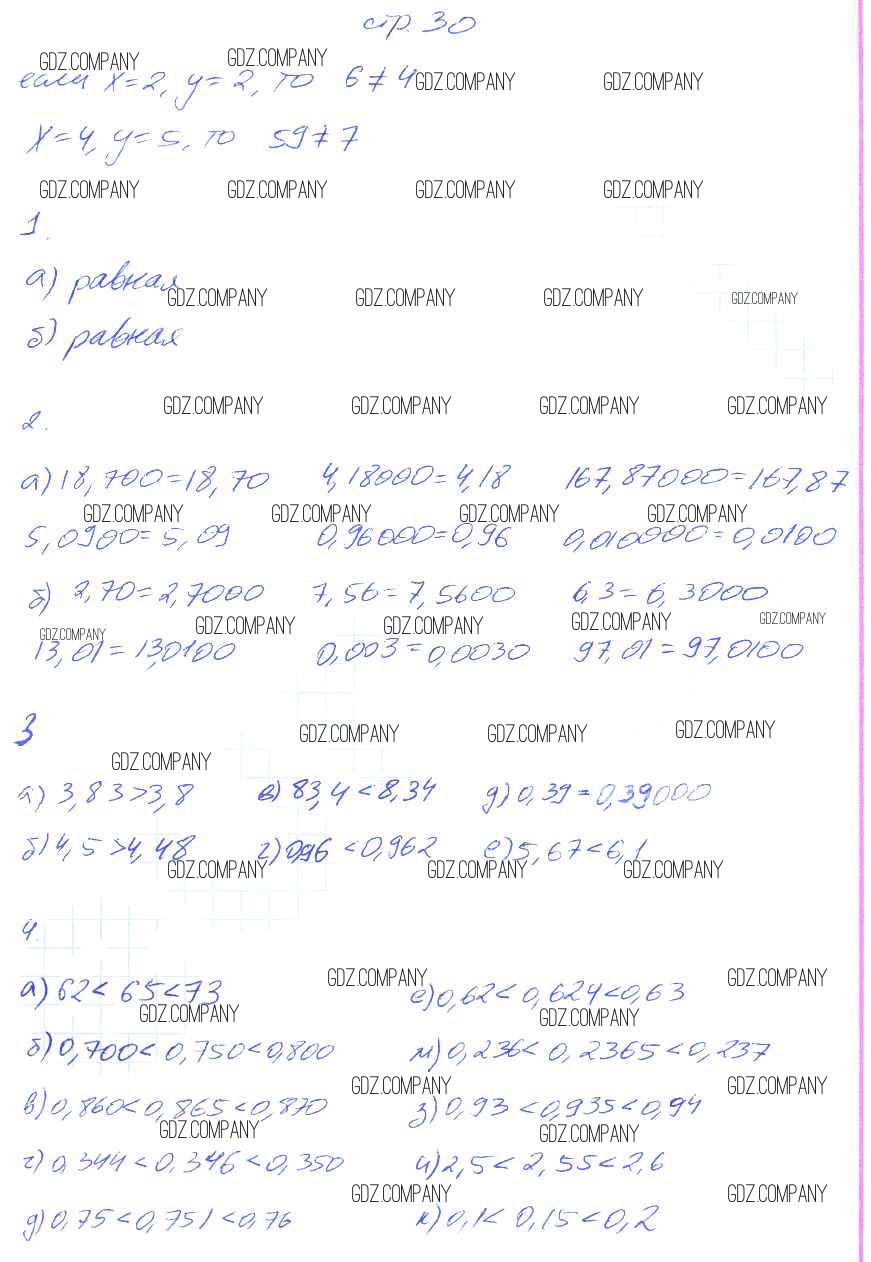 стр. 30
GDZ.COMPANY GDZ.COMPANY
если x=2, y=2, то 6≠4 GDZ.COMPANY GDZ.COMPANY
x=4, y=5, то 59≠7
GDZ.COMPANY GDZ.COMPANY GDZ.COMPANY GDZ.COMPANY
1.
а) равная
GDZ.COMPANY GDZ.COMPANY GDZ.COMPANY GDZ.COMPANY
б) равная
GDZ.COMPANY GDZ.COMPANY GDZ.COMPANY GDZ.COMPANY
2.
а) 18,700=18,70 4,18000=4,18 167,87000=167,87
GDZ.COMPANY GDZ.COMPANY GDZ.COMPANY GDZ.COMPANY
5,0900=5,09 0,96000=0,96 0,010000=0,0100
б) 2,70=2,7000 7,56=7,5600 6,3=6,3000
GDZ.COMPANY GDZ.COMPANY GDZ.COMPANY GDZ.COMPANY GDZ.COMPANY
13,01=13,0100 0,003=0,0030 97,01=97,0100
3
GDZ.COMPANY GDZ.COMPANY GDZ.COMPANY
GDZ.COMPANY
а) 3,83>3,8 в) 83,4<8,34 д) 0,39=0,39000
б) 4,5>4,48 г) 0,96<0,962 е) 5,67<6,1
GDZ.COMPANY GDZ.COMPANY GDZ.COMPANY
4.
GDZ.COMPANY GDZ.COMPANY
а) 62<65<73 е) 0,62<0,624<0,63
GDZ.COMPANY GDZ.COMPANY
б) 0,700<0,750<0,800 м) 0,236<0,2365<0,237
GDZ.COMPANY GDZ.COMPANY
в) 0,860<0,865<0,870 з) 0,93<0,935<0,94
GDZ.COMPANY GDZ.COMPANY
г) 0,344<0,346<0,350 и) 2,5<2,55<2,6
GDZ.COMPANY GDZ.COMPANY
д) 0,75<0,751<0,76 к) 0,1<0,15<0,2